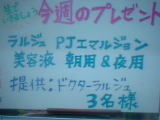 今週のプレゼント
ラルジュ PJエマルジョン
美容液 朝用&夜用
提供:ドクターラルジュ
3名様